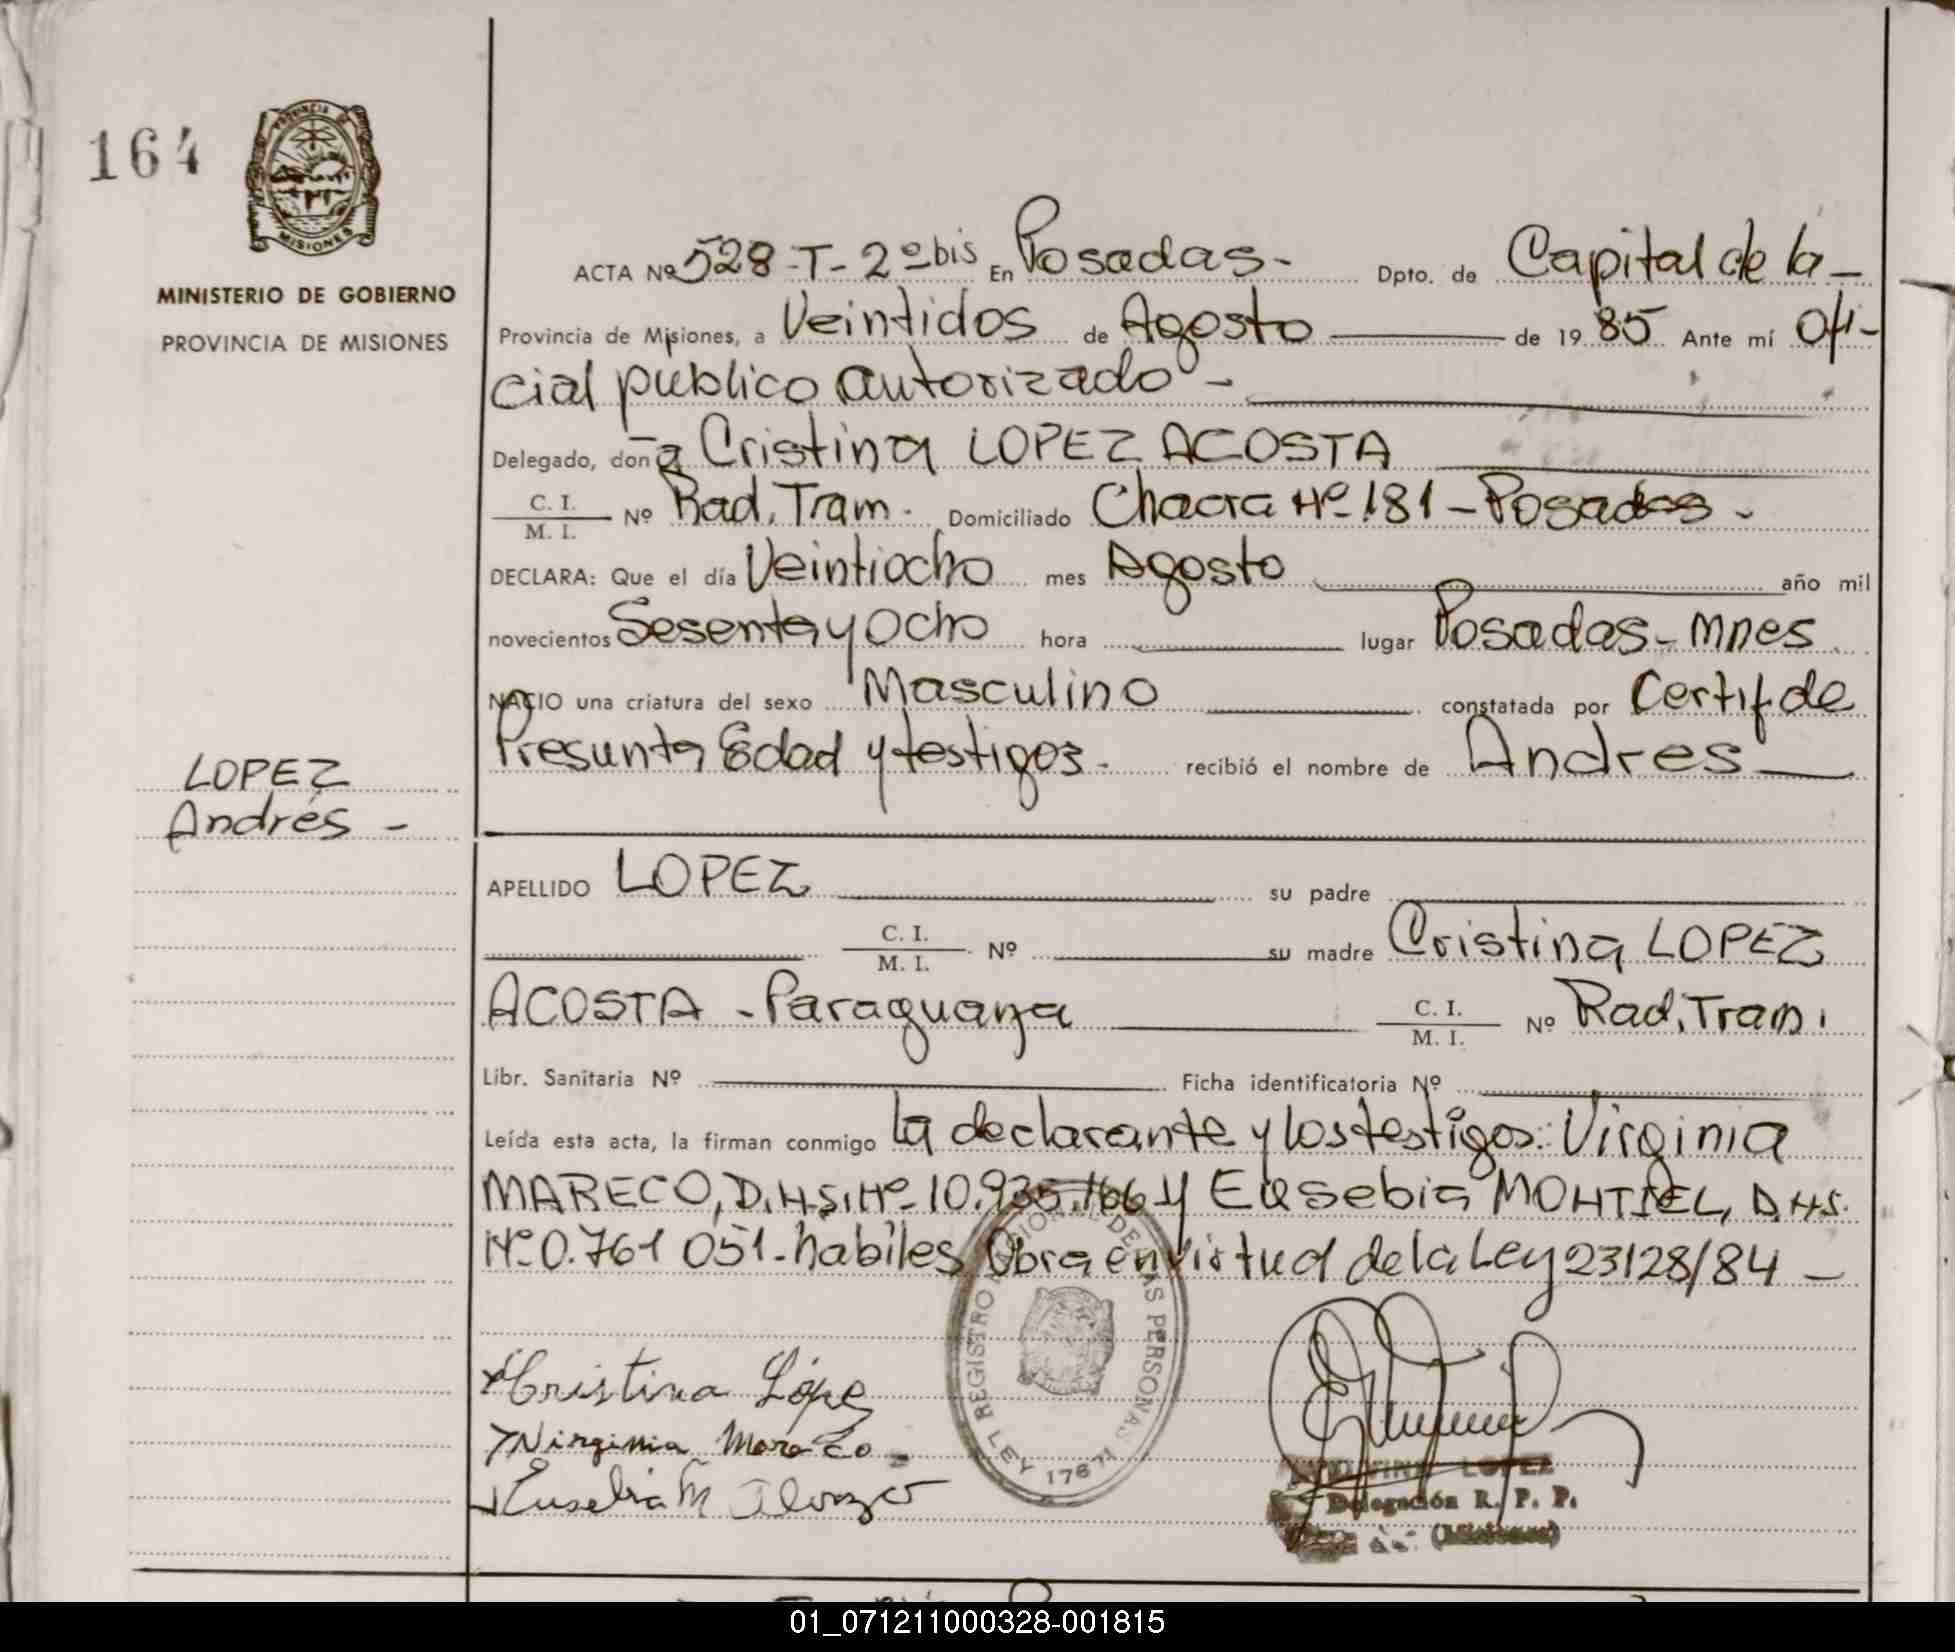 164
PROVINCIA DE
MISIONES
MINISTERIO DE GOBIERNO
PROVINCIA DE MISIONES
LOPEZ
Andrés -
ACTA Nº 528-T-2º bis En Posadas- Dpto. de Capital de la -
Provincia de Misiones, a Veintidos de Agosto de 1985 Ante mí Ofi-
cial publico autorizado -
Delegado, don a Cristina LOPEZ ACOSTA
C. I.
M. I. Nº Rad. Tram. Domiciliado Chacra Nº 181 - Posadas -
DECLARA: Que el día Veintiocho mes Agosto año mil
novecientos Sesenta y Ocho hora lugar Posadas - Mnes
NACIO una criatura del sexo Masculino constatada por Certif de
Presunta Edad y testigos - recibió el nombre de Andres
APELLIDO LOPEZ su padre
C. I.
M. I. Nº su madre Cristina LOPEZ
ACOSTA - Paraguaya C. I.
M. I. Nº Rad. Tram.
Libr. Sanitaria Nº Ficha identificatoria Nº
Leída esta acta, la firman conmigo la declarante y los testigos: Virginia
MARECO, D.N.S. Nº 10.935.166 y Eusebia MONTIEL, D.N.S.
Nº 0.761 051 - habiles Obra en virtud de la Ley 23128/84 -
REGISTRO NACIONAL DE LAS PERSONAS
LEY 17671
Cristina López
Virginia Mareco
Eusebia M
LOPEZ
Delegación R. P. P.
(Misiones)
01_071211000328-001815